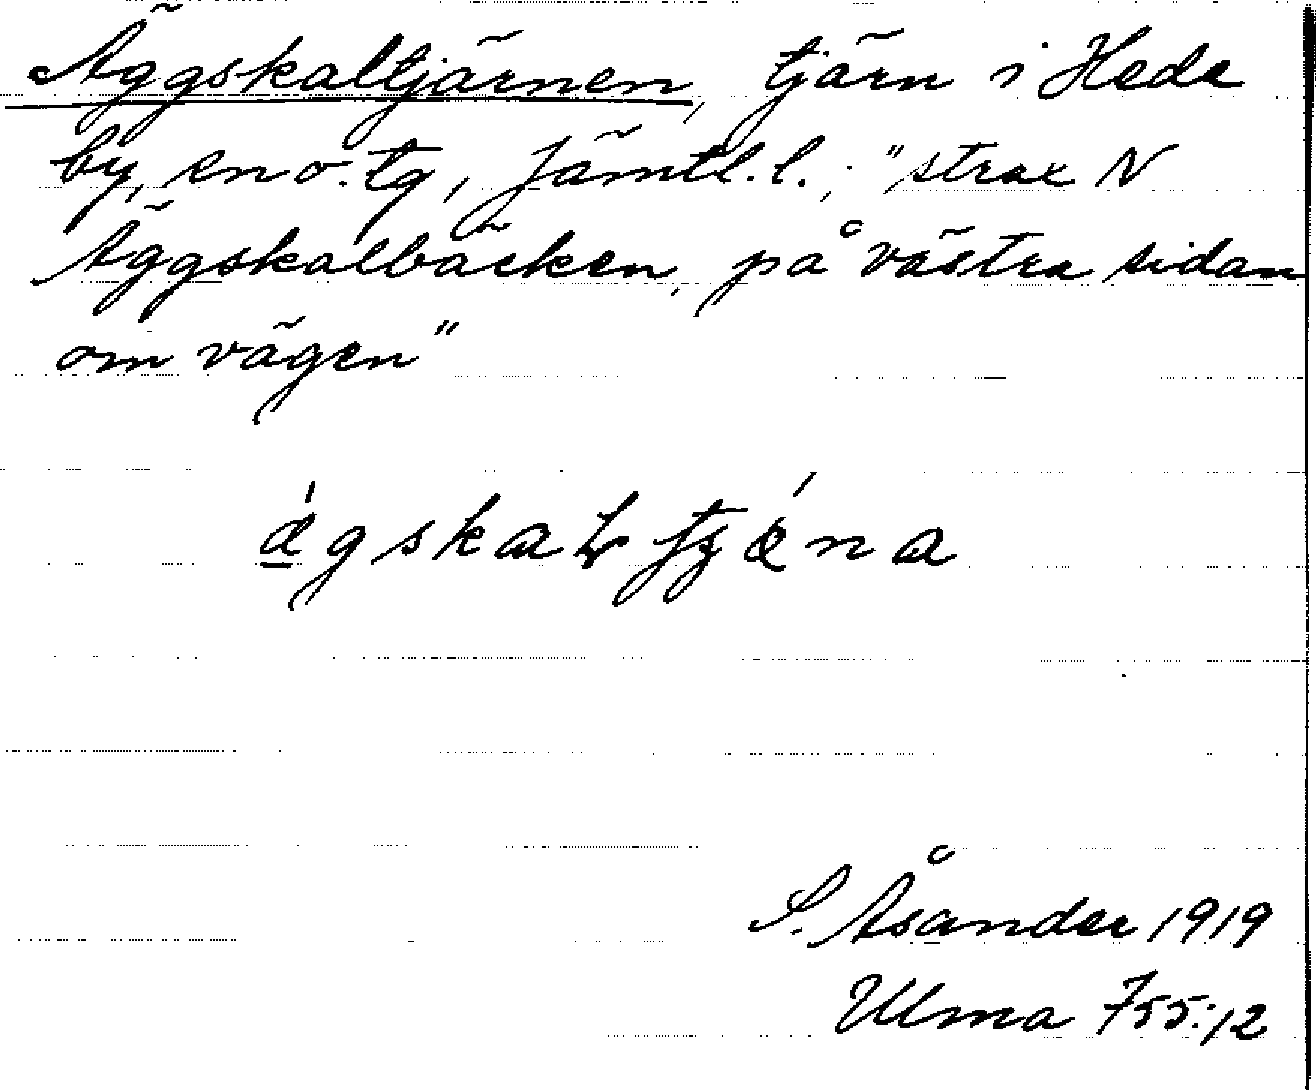 Äggskaltjärnen, tjärn i Hede
by, sn o. tg, Jämtl. l.; "strax N
Äggskalbäcken, på västra sidan
om vägen"
S. Åsander 1919
Ulma 755:12